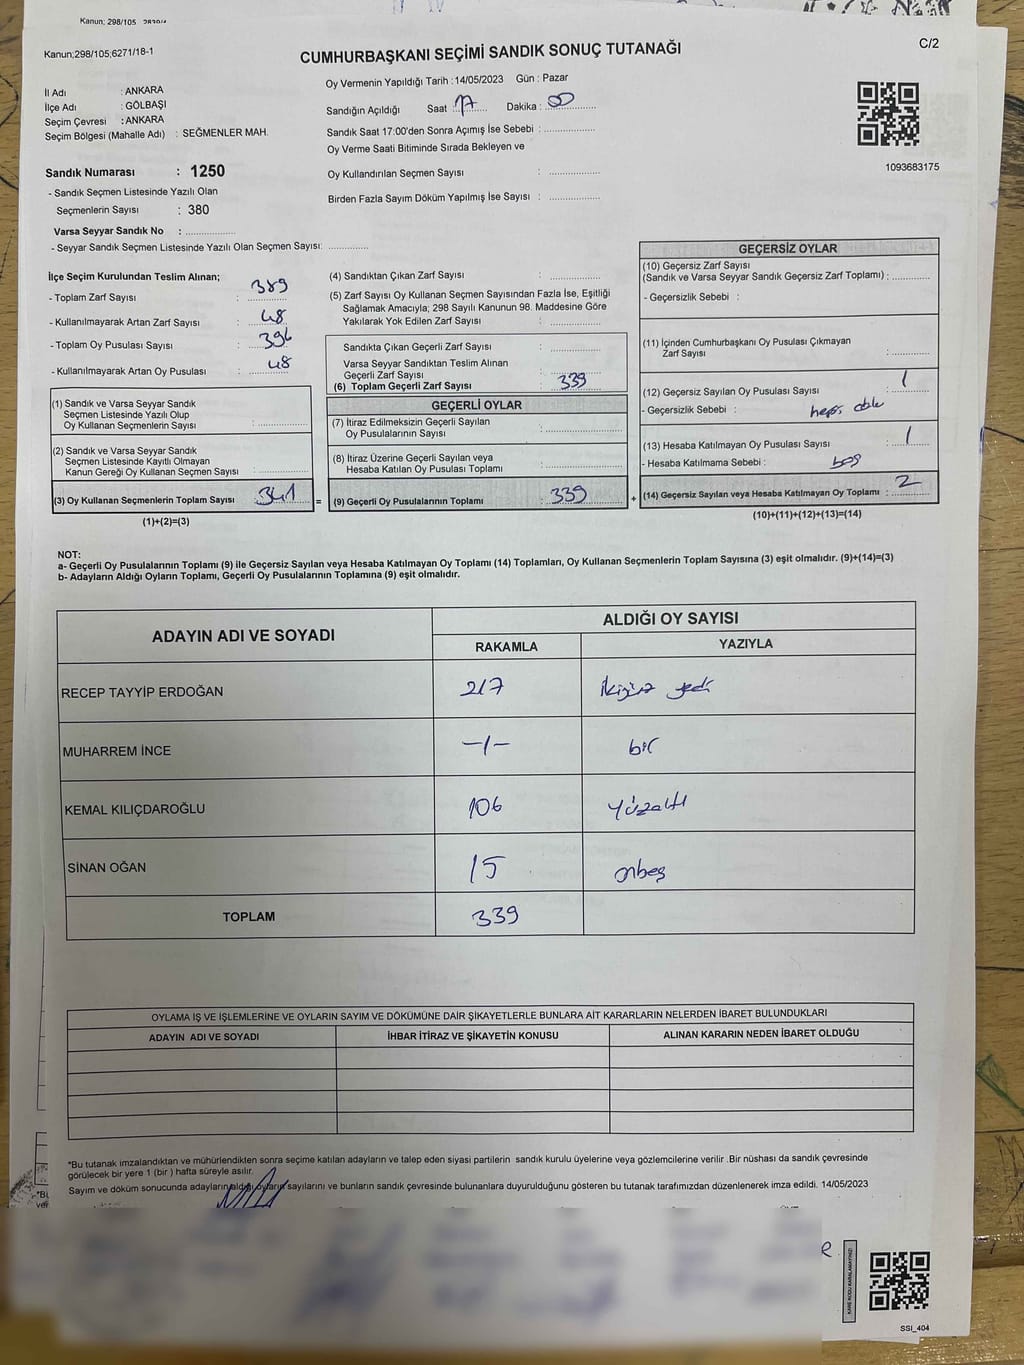 Kanun; 298/105
Kanun;298/105;6271/18-1
C/2
CUMHURBAŞKANI SEÇİMİ SANDIK SONUÇ TUTANAĞI
Oy Vermenin Yapıldığı Tarih :14/05/2023 Gün : Pazar
İl Adı : ANKARA
İlçe Adı : GÖLBAŞI
Seçim Çevresi : ANKARA
Seçim Bölgesi (Mahalle Adı) : SEĞMENLER MAH.
Sandığın Açıldığı Saat 17 Dakika : 00
Sandık Saat 17:00'den Sonra Açımış İse Sebebi :
Oy Verme Saati Bitiminde Sırada Bekleyen ve
Oy Kullandırılan Seçmen Sayısı :
Birden Fazla Sayım Döküm Yapılmış İse Sayısı :
1093683175
Sandık Numarası : 1250
- Sandık Seçmen Listesinde Yazılı Olan
Seçmenlerin Sayısı : 380
Varsa Seyyar Sandık No :
- Seyyar Sandık Seçmen Listesinde Yazılı Olan Seçmen Sayısı:
İlçe Seçim Kurulundan Teslim Alınan;
- Toplam Zarf Sayısı : 389
- Kullanılmayarak Artan Zarf Sayısı : 48
- Toplam Oy Pusulası Sayısı : 396
- Kullanılmayarak Artan Oy Pusulası : 48
(1) Sandık ve Varsa Seyyar Sandık
Seçmen Listesinde Yazılı Olup
Oy Kullanan Seçmenlerin Sayısı :
(2) Sandık ve Varsa Seyyar Sandık
Seçmen Listesinde Kayıtlı Olmayan
Kanun Gereği Oy Kullanan Seçmen Sayısı :
(3) Oy Kullanan Seçmenlerin Toplam Sayısı : 341 =
(1)+(2)=(3)
(4) Sandıktan Çıkan Zarf Sayısı :
(5) Zarf Sayısı Oy Kullanan Seçmen Sayısından Fazla İse, Eşitliği
Sağlamak Amacıyla; 298 Sayılı Kanunun 98. Maddesine Göre
Yakılarak Yok Edilen Zarf Sayısı :
Sandıkta Çıkan Geçerli Zarf Sayısı :
Varsa Seyyar Sandıktan Teslim Alınan
Geçerli Zarf Sayısı :
(6) Toplam Geçerli Zarf Sayısı : 339
GEÇERLİ OYLAR
(7) İtiraz Edilmeksizin Geçerli Sayılan
Oy Pusulalarının Sayısı :
(8) İtiraz Üzerine Geçerli Sayılan veya
Hesaba Katılan Oy Pusulası Toplamı :
(9) Geçerli Oy Pusulalarının Toplamı : 339 +
GEÇERSİZ OYLAR
(10) Geçersiz Zarf Sayısı
(Sandık ve Varsa Seyyar Sandık Geçersiz Zarf Toplamı) :
- Geçersizlik Sebebi :
(11) İçinden Cumhurbaşkanı Oy Pusulası Çıkmayan
Zarf Sayısı :
(12) Geçersiz Sayılan Oy Pusulası Sayısı : 1
- Geçersizlik Sebebi :
(13) Hesaba Katılmayan Oy Pusulası Sayısı : 1
- Hesaba Katılmama Sebebi : boş
(14) Geçersiz Sayılan veya Hesaba Katılmayan Oy Toplamı : 2
(10)+(11)+(12)+(13)=(14)
NOT:
a- Geçerli Oy Pusulalarının Toplamı (9) ile Geçersiz Sayılan veya Hesaba Katılmayan Oy Toplamı (14) Toplamları, Oy Kullanan Seçmenlerin Toplam Sayısına (3) eşit olmalıdır. (9)+(14)=(3)
b- Adayların Aldığı Oyların Toplamı, Geçerli Oy Pusulalarının Toplamına (9) eşit olmalıdır.
ADAYIN ADI VE SOYADI
ALDIĞI OY SAYISI
RAKAMLA YAZIYLA
RECEP TAYYİP ERDOĞAN 217 ikiyüz yedi
MUHARREM İNCE -1- bir
KEMAL KILIÇDAROĞLU 106 yüzaltı
SİNAN OĞAN 15 onbeş
TOPLAM 339
OYLAMA İŞ VE İŞLEMLERİNE VE OYLARIN SAYIM VE DÖKÜMÜNE DAİR ŞİKAYETLERLE BUNLARA AİT KARARLARIN NELERDEN İBARET BULUNDUKLARI
ADAYIN ADI VE SOYADI İHBAR İTİRAZ VE ŞİKAYETİN KONUSU ALINAN KARARIN NEDEN İBARET OLDUĞU
*Bu tutanak imzalandıktan ve mühürlendikten sonra seçime katılan adayların ve talep eden siyasi partilerin sandık kurulu üyelerine veya gözlemcilerine verilir .Bir nüshası da sandık çevresinde
görülecek bir yere 1 (bir ) hafta süreyle asılır.
Sayım ve döküm sonucunda adayların aldığı oyların sayılarını ve bunların sandık çevresinde bulunanlara duyurulduğunu gösteren bu tutanak tarafımızdan düzenlenerek imza edildi. 14/05/2023
KARE KODU KARALAMAYINIZ!
SSI_404